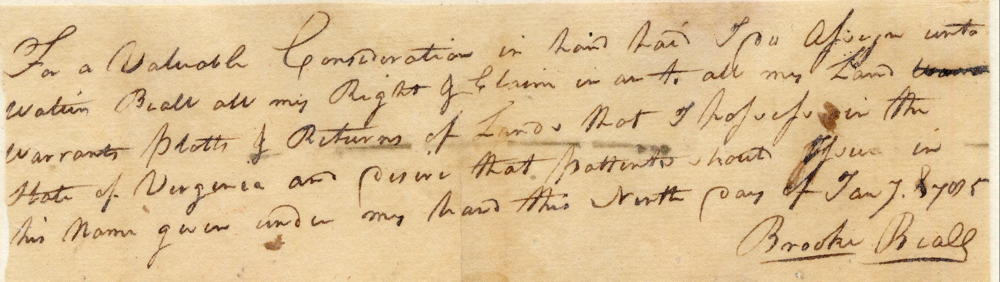 For a Valuable Consideration in hand paid I do Assign unto
Walter Beall all my Right & Claim in an to all my Land
warrants plotts & Returns of Lands that I possess in the
State of Virginia and desire that pattents should Issue in
his Name given under my hand this Ninth day of Jany. 1785
Brooke Beall